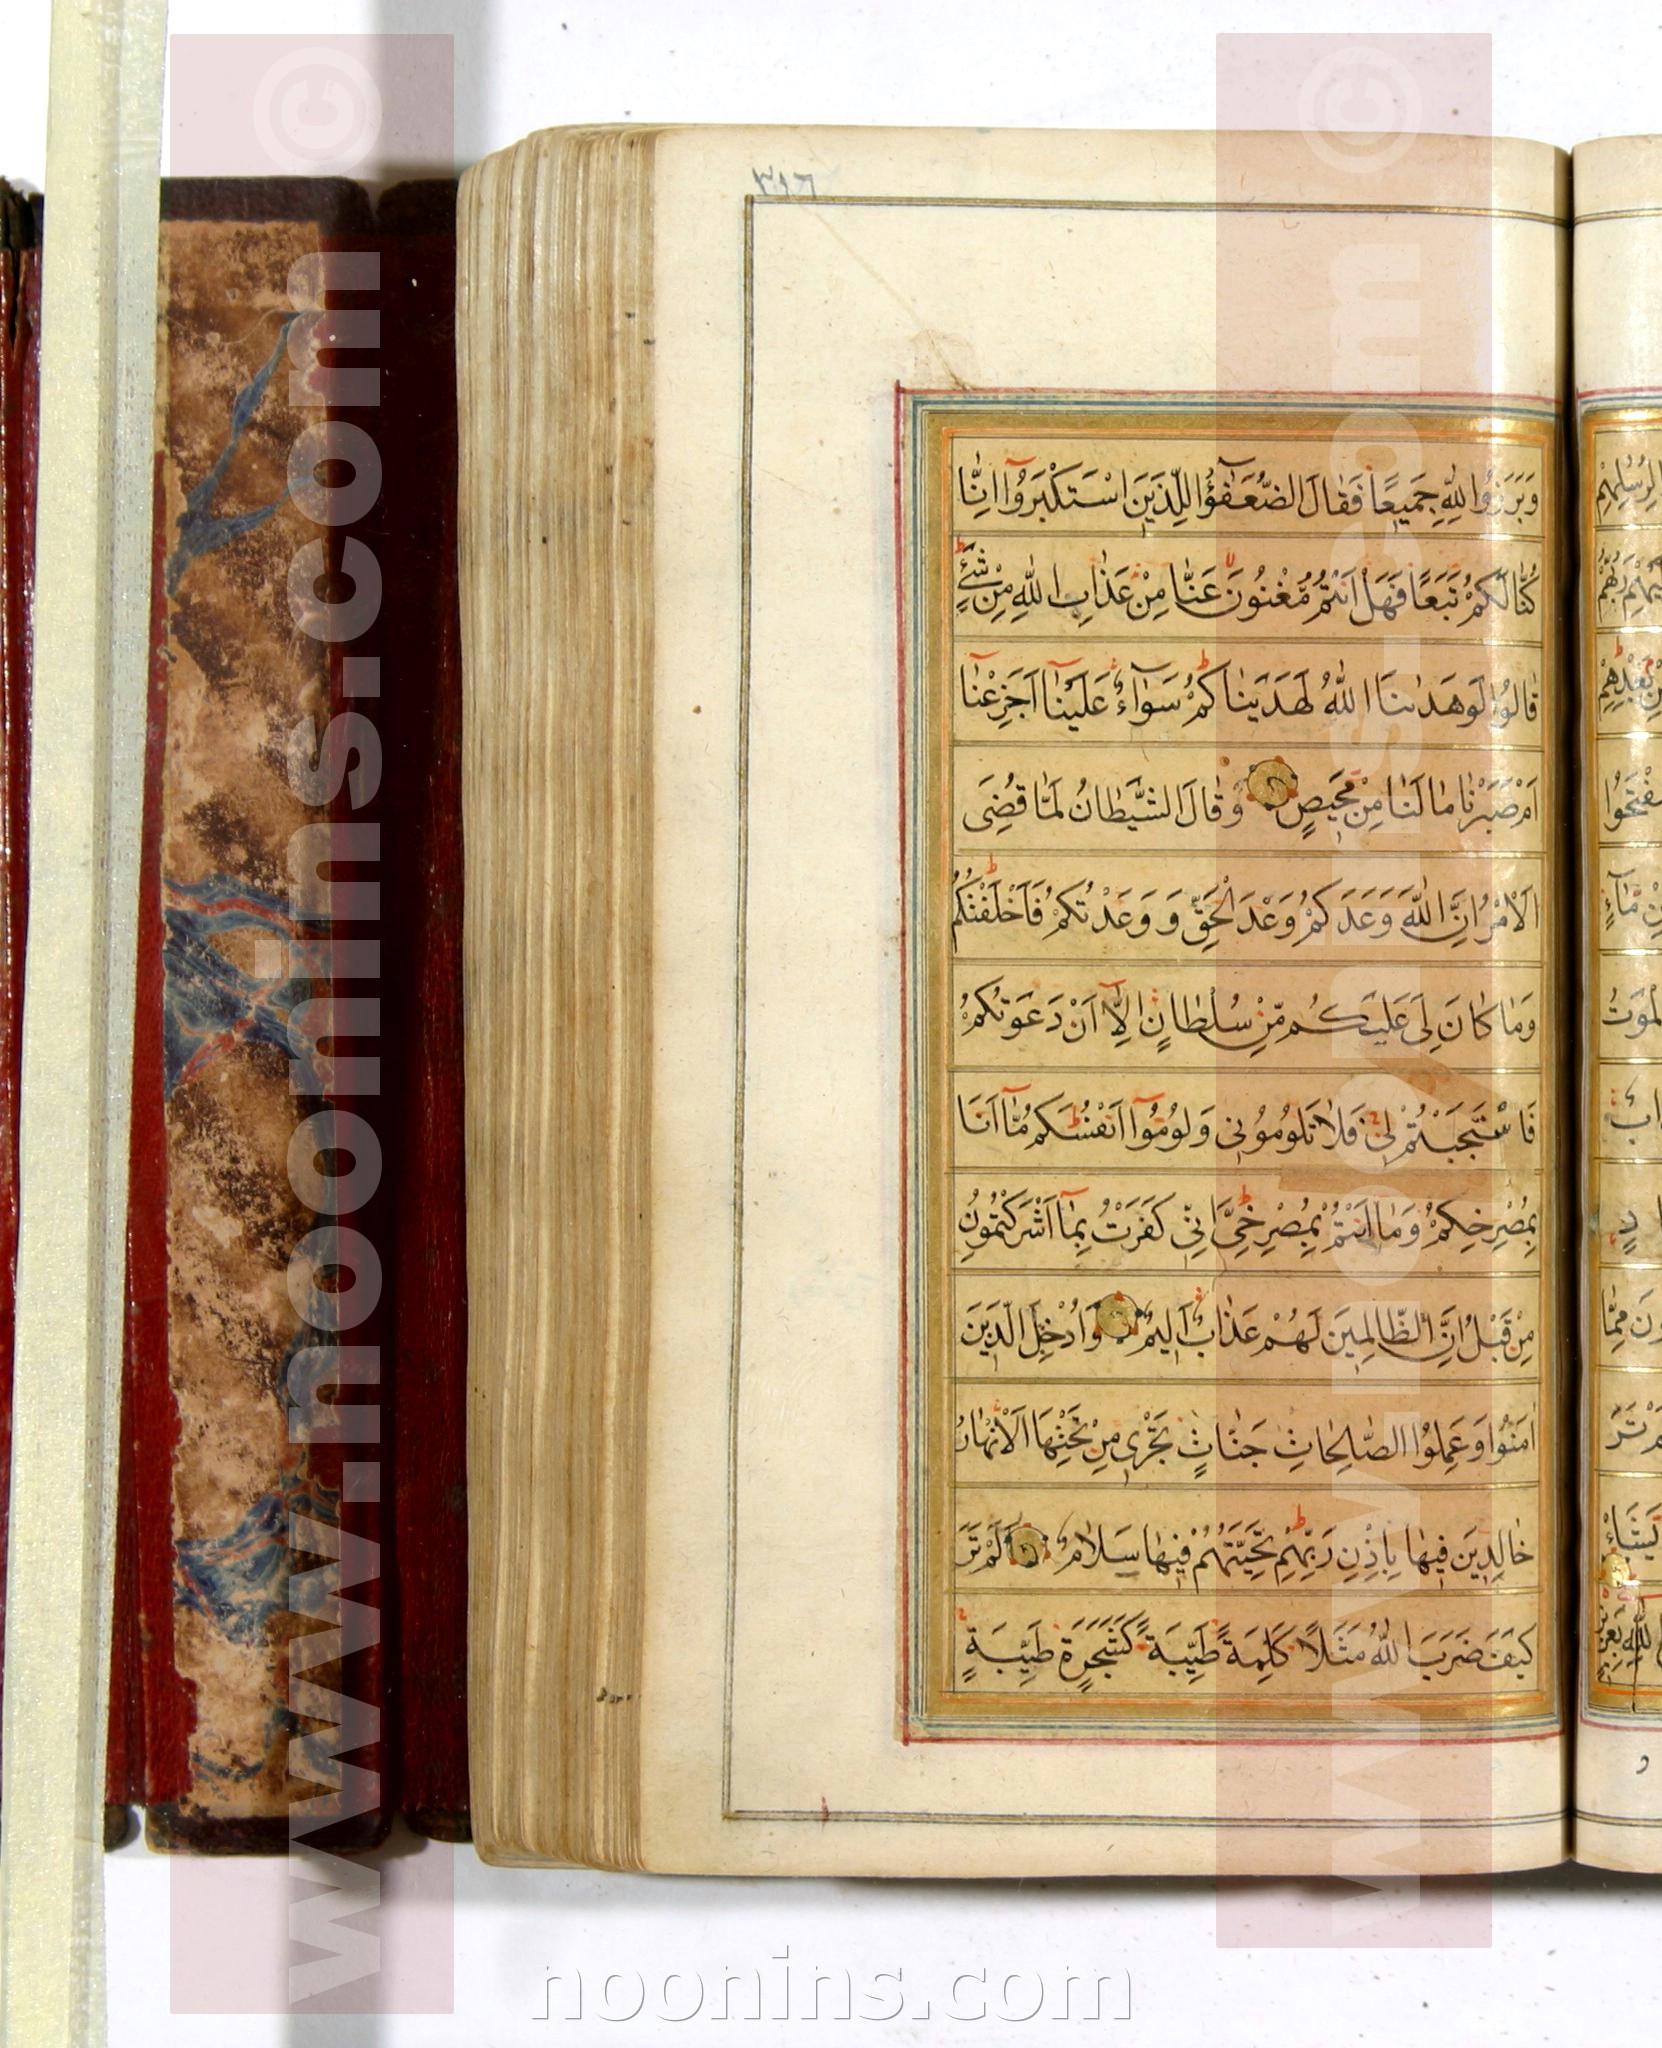 ٣١٦
وَبَرَزُوا لِلّٰهِ جَمِيعًا فَقَالَ الضُّعَفٰٓؤُا لِلَّذِينَ اسْتَكْبَرُوٓا اِنَّا
كُنَّا لَكُمْ تَبَعًا فَهَلْ اَنْتُمْ مُغْنُونَ عَنَّا مِنْ عَذَابِ اللّٰهِ مِنْ شَیْءٍ
قَالُوا لَوْ هَدٰىنَا اللّٰهُ لَهَدَيْنَاكُمْ سَوَآءٌ عَلَيْنَآ اَجَزِعْنَآ
اَمْ صَبَرْنَا مَا لَنَا مِنْ مَحِيصٍ وَقَالَ الشَّيْطَانُ لَمَّا قُضِیَ
الْاَمْرُ اِنَّ اللّٰهَ وَعَدَكُمْ وَعْدَ الْحَقِّ وَ وَعَدْتُكُمْ فَاَخْلَفْتُكُمْ
وَمَا كَانَ لِیَ عَلَيْكُمْ مِنْ سُلْطَانٍ اِلَّآ اَنْ دَعَوْتُكُمْ
فَاسْتَجَبْتُمْ لِی فَلَا تَلُومُونِی وَلُومُوٓا اَنْفُسَكُمْ مَآ اَنَا
بِمُصْرِخِكُمْ وَمَآ اَنْتُمْ بِمُصْرِخِیَّ اِنِّی كَفَرْتُ بِمَآ اَشْرَكْتُمُونِ
مِنْ قَبْلُ اِنَّ الظَّالِمِينَ لَهُمْ عَذَابٌ اَلِيمٌ وَاُدْخِلَ الَّذِينَ
اٰمَنُوا وَعَمِلُوا الصَّالِحَاتِ جَنَّاتٍ تَجْرِی مِنْ تَحْتِهَا الْاَنْهَارُ
خَالِدِينَ فِيهَا بِاِذْنِ رَبِّهِمْ تَحِيَّتُهُمْ فِيهَا سَلَامٌ اَلَمْ تَرَ
كَيْفَ ضَرَبَ اللّٰهُ مَثَلًا كَلِمَةً طَيِّبَةً كَشَجَرَةٍ طَيِّبَةٍ
© www.noonins.com
noonins.com